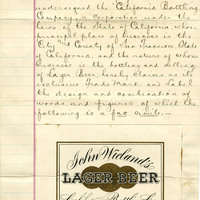 undersigned, the "California Bottling
Company" a Corporation under the
laws of the State of California whose
principal place of business is the
City and County of San Francisco State
of California, and the nature of whose
business is the bottling and selling
of Lager Beer, hereby claims as its
exclusive Trade mark, and Label
the design and combination of
words and figures, of which the
following is a fac simile.—
John Wieland's
LAGER BEER